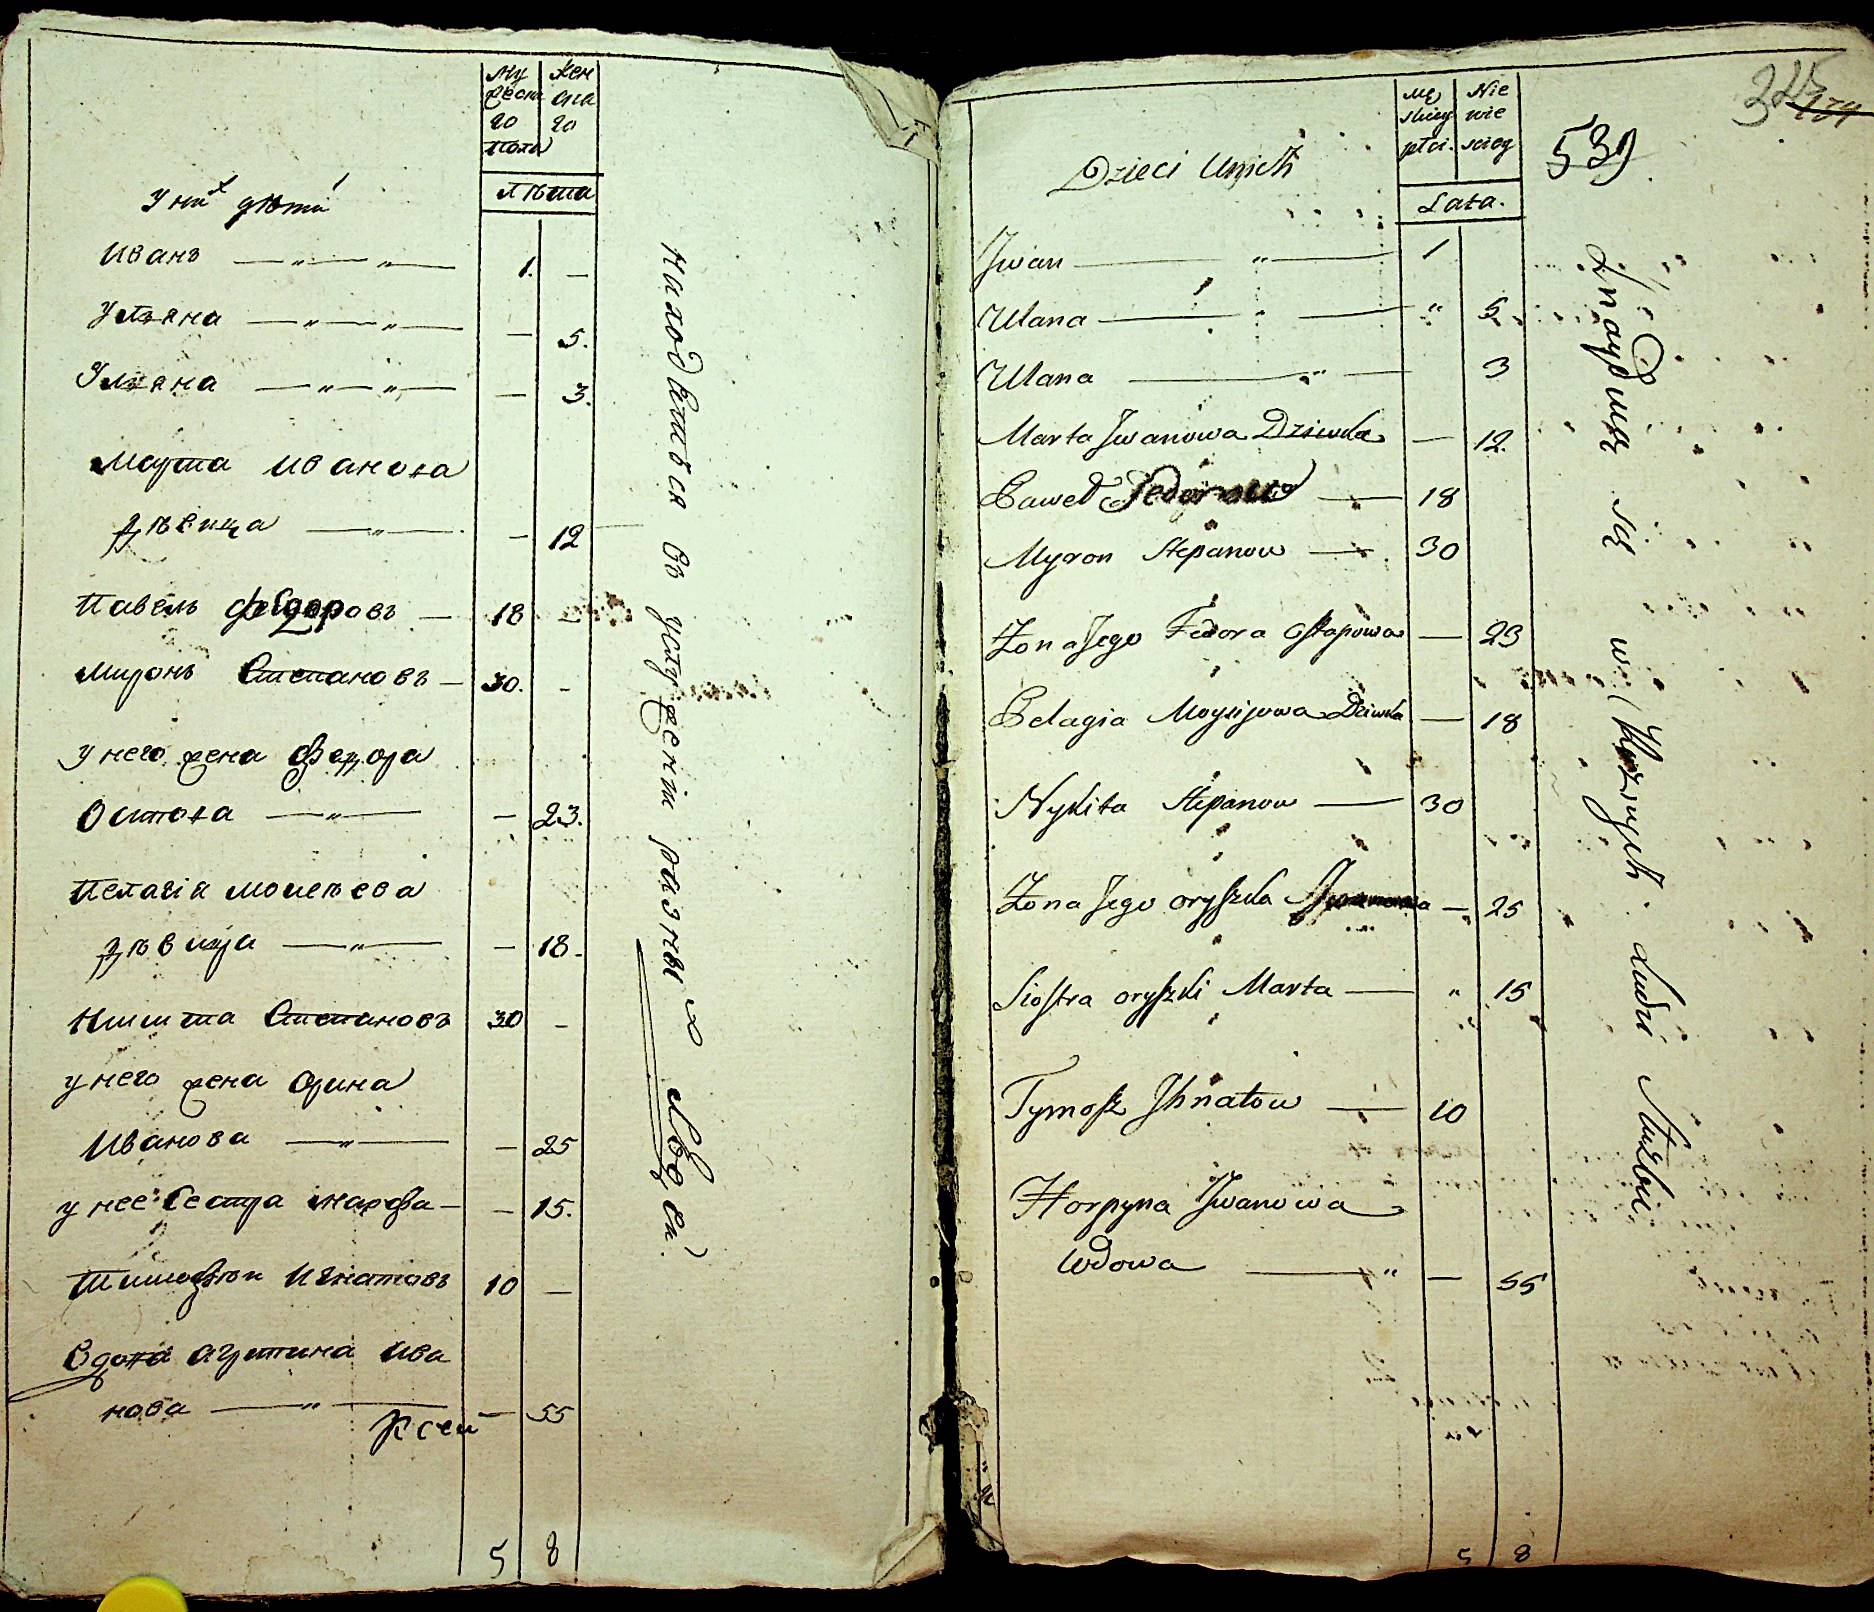 Му Жен
жеска ска
го го
полу
Лѣта
У них дѣти
Иванъ 1. —
Ульяна — 5.
Ульяна — 3.
Марта Иванова
дѣвица — 12
Павелъ Федоровъ — 18 —
Миронъ Степановъ — 30. —
у него жена Федора
Остапова — 23.
Пелагія Моисѣева
дѣвица — 18.
Никита Степановъ 30 —
у него жена Орина
Иванова — 25
у нее сестра Марфа — — 15.
Тимофѣй Игнатовъ 10 —
Вдова Агрипина Ива
нова — 55
5 8
находятся въ услуженіи разныхъ людей
324
539
Mę Nie
skiey wie
płci. sciey
Lata.
Dzieci Unich
Jwan 1
Ulana " 5
Ulana 3
Marta Jwanowa Dziwka — 12.
Paweł Fedorow — 18
Myron Stepanow — 30
Żona Jego Fedora Ostapowa — 23
Pelagia Moysijowa Dziwka — 18
Nykita Stepanow — 30
Żona Jego oryszka Jwanowa — 25
Siostra oryszki Marta — " 15
Tymosz Jhnatow — 10
Horpyna Jwanowa
Wdowa " — 55
5 8
Znayduią się w Roznych Ludzi Służbie